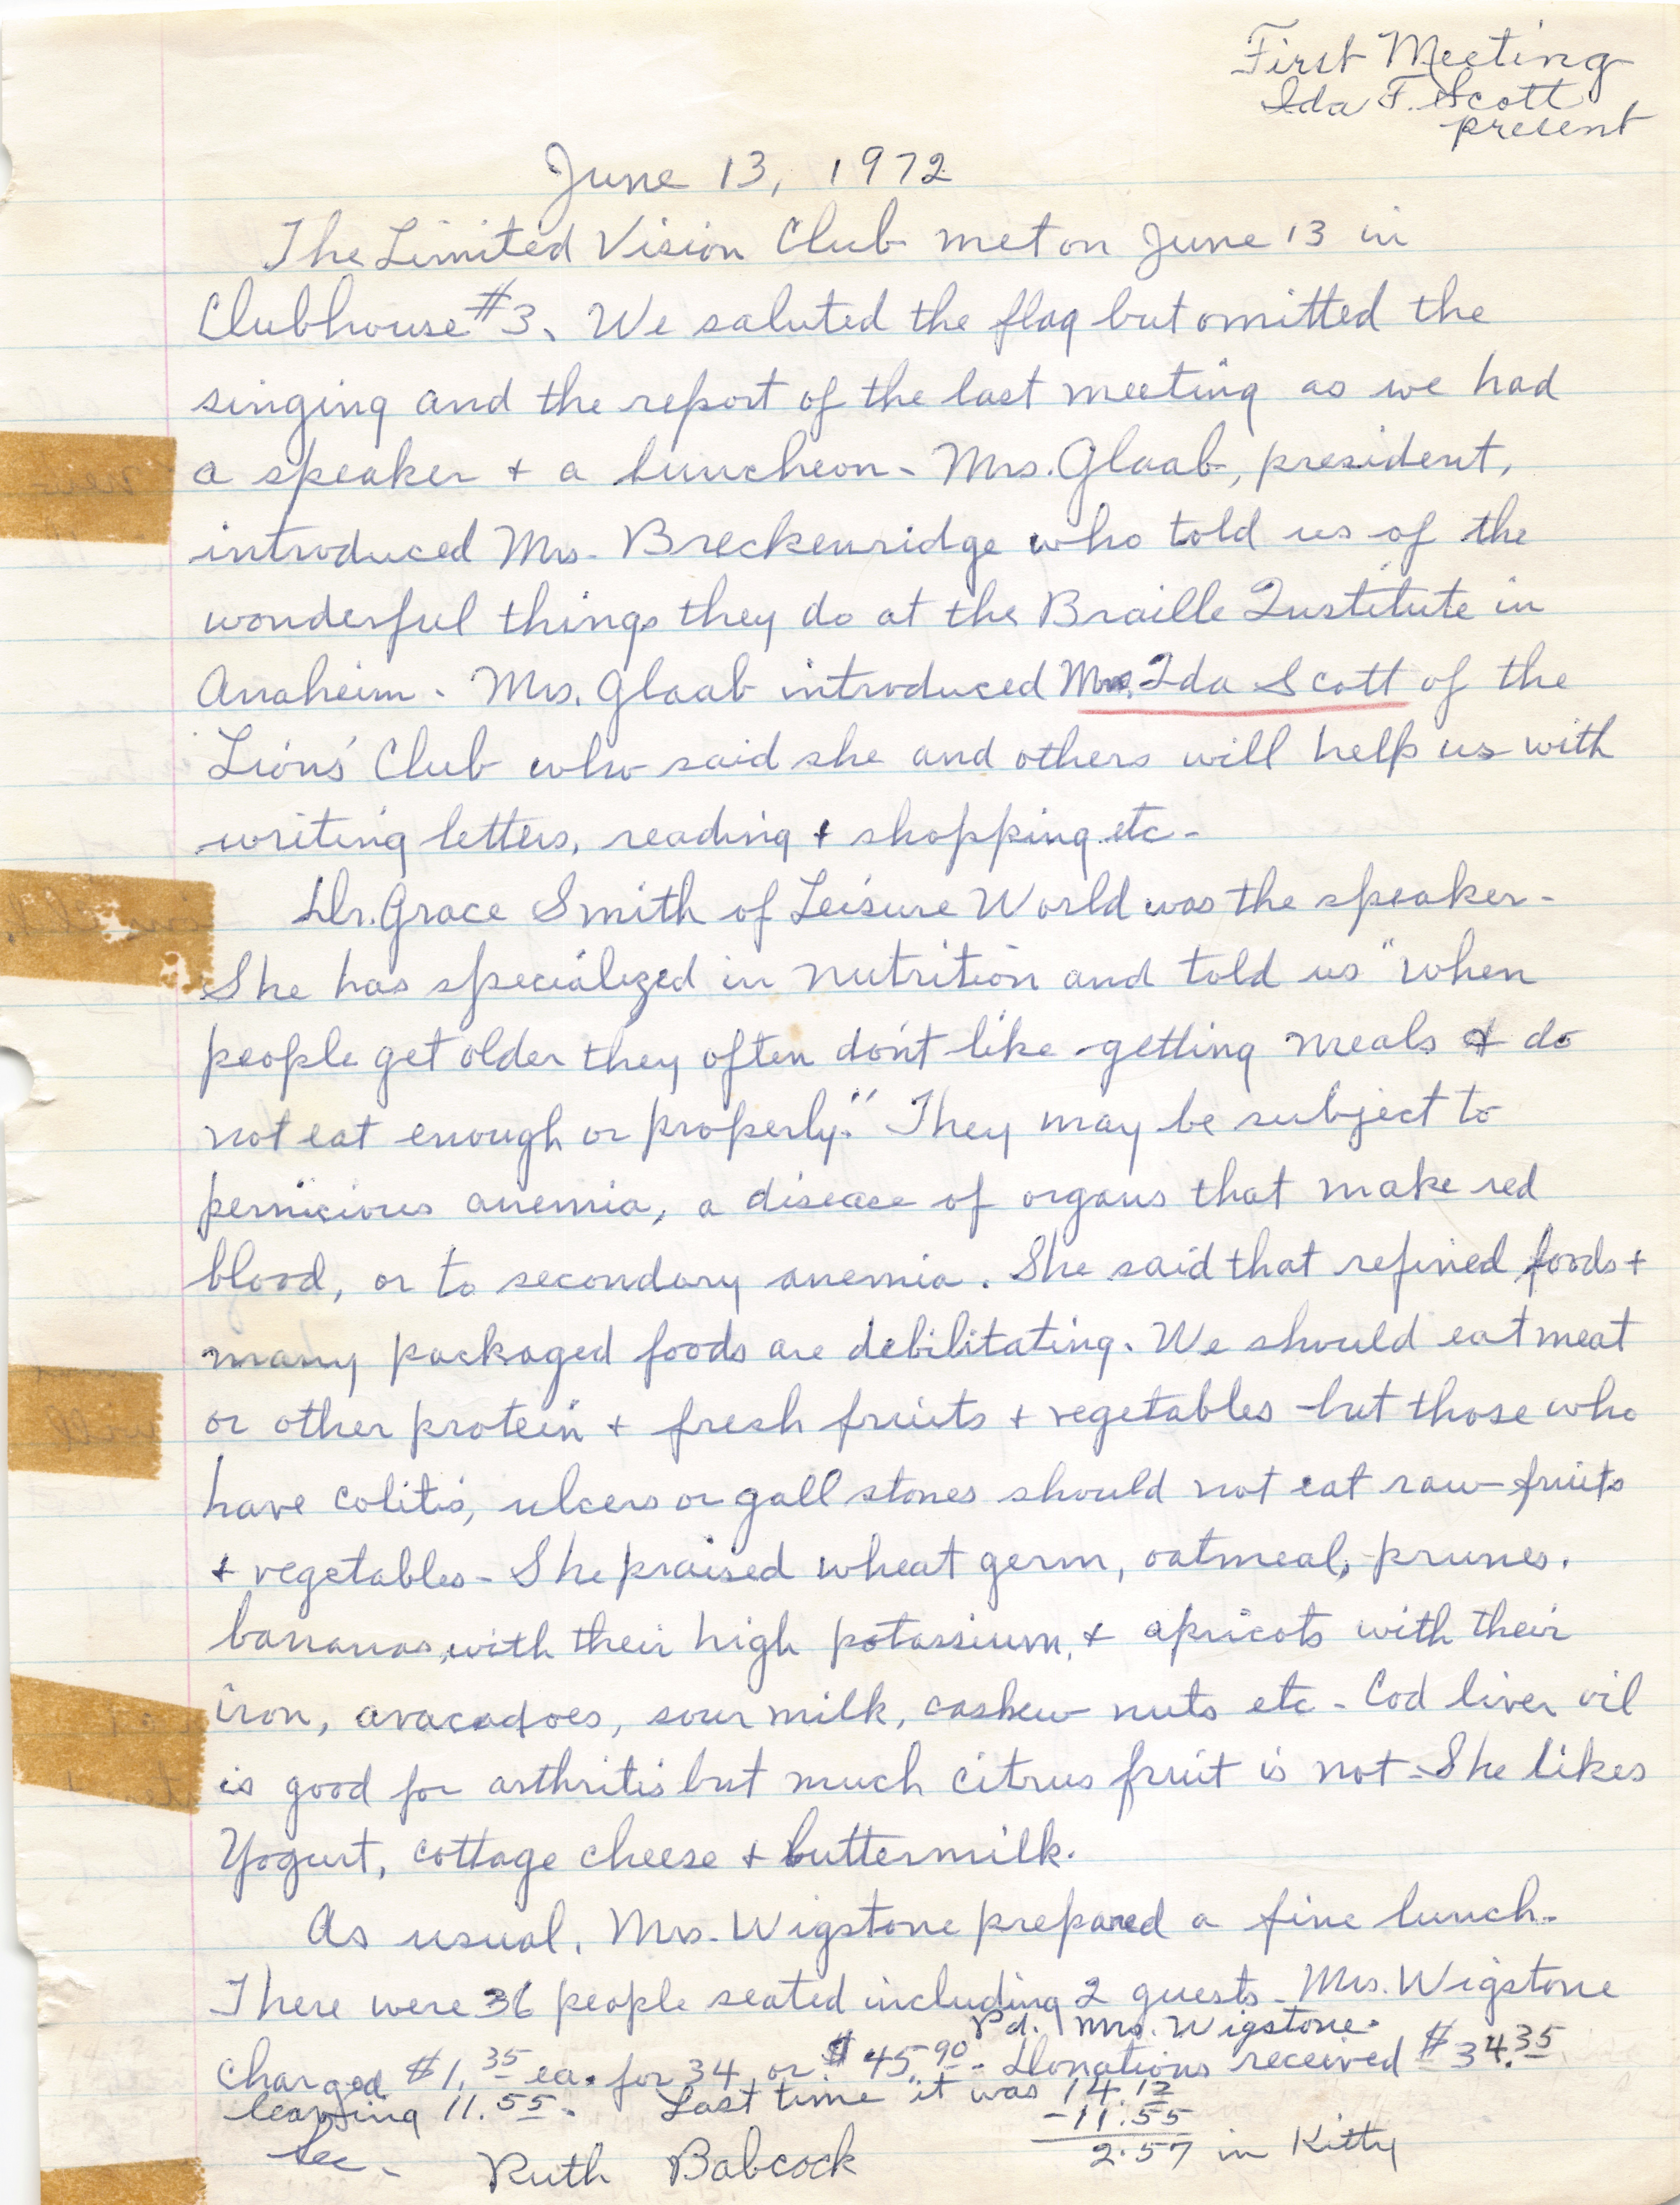 First Meeting
Ida F. Scott
present
June 13, 1972
The Limited Vision Club met on June 13 in
Clubhouse #3. We saluted the flag but omitted the
singing and the report of the last meeting as we had
a speaker + a luncheon. Mrs. Glaab, president,
introduced Mrs. Breckenridge who told us of the
wonderful things they do at the Braille Institute in
Anaheim. Mrs. Glaab introduced Mrs. Ida Scott of the
Lions' Club who said she and others will help us with
writing letters, reading + shopping etc.
Dr. Grace Smith of Leisure World was the speaker.
She has specialized in nutrition and told us "when
people get older they often don't like getting meals & do
not eat enough or properly." They may be subject to
pernicious anemia, a disease of organs that make red
blood, or to secondary anemia. She said that refined foods +
many packaged foods are debilitating. We should eat meat
or other protein + fresh fruits + vegetables but those who
have colitis, ulcers or gall stones should not eat raw fruits
+ vegetables - She praised wheat germ, oatmeal, prunes,
bananas, with their high potassium, + apricots with their
iron, avacadoes, sour milk, cashew nuts etc - Cod liver oil
is good for arthritis but much citrus fruit is not - She likes
Yogurt, cottage cheese + buttermilk.
As usual, Mrs. Wigstone prepared a fine lunch.
There were 36 people seated including 2 guests - Mrs. Wigstone
Pd. Mrs. Wigstone.
charged $1.35 ea. for 34 or $45.90. Donations received $34.35
leaving 11.55. Last time it was 14.12
-11.55
2.57 in Kitty
Sec. Ruth Babcock